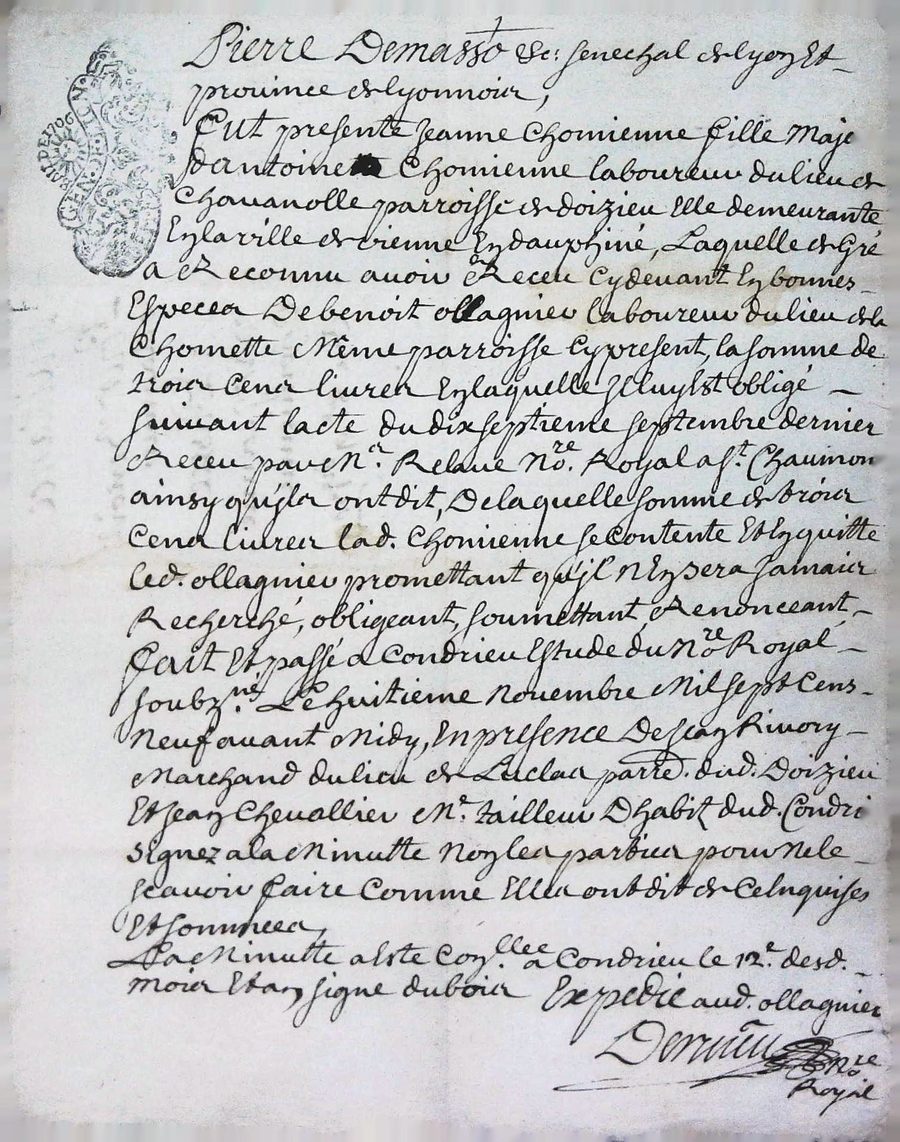 GEN. DE LION
Pierre Demasso &c: senechal de lyon Et
province de lyonnois,
Fut presente Jeanne Chomienne fille Maje
dantoine Chomienne laboureur du lieu de
Chavanolle parroisse de doizieu Elle demeurante
En la ville de vienne En dauphiné, Laquelle de Gré
a Reconnu avoir Receu cy devant En bonnes
Especes De benoit ollagnier laboureur du lieu de la
Chomette Même parroisse cy present, la somme de
trois cens livres En laquelle Jceluy Est obligé
suivant lacte du dix septieme septembre dernier
Receu par Me. Relave Nore. Royal a St. Chaumon
ainsy qu'jls ont dit, De laquelle somme de trois
Cens livres lad. Chomienne se contente Et En quitte
led. ollagnier promettant qu'jl n En sera Jamais
Recherché, obligeant, soumettant, Renonceant,
Fait Et passé a Condrieu Estude du Nore Royal
soubzné. Le huitieme Novembre Mil sept Cens
Neuf avant Midy, En presence De Jean Rivory
Marchand du lieu de Luclas parre. dud. Doizieu
Et Jean Chevallier Me. tailleur Dhabit dud. Condri
signez a la Minutte Non les parties pour ne le
scavoir faire Comme Elles ont dit de Ce Enquises
Et sommees,
La Minutte a Este Conllee a Condrieu le 12e. desd.
mois Et an, signe dubois Expedie aud. ollagnier
Nre
Royal